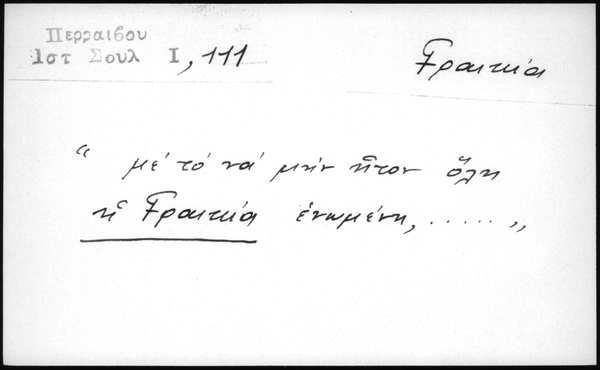 Περραιβου
Ιστ Σουλ Ι, 111
Γραικία
“ μέ τό νά μήν ἦτον ὅλη
ἡ Γραικία ἑνωμένη, ..... „